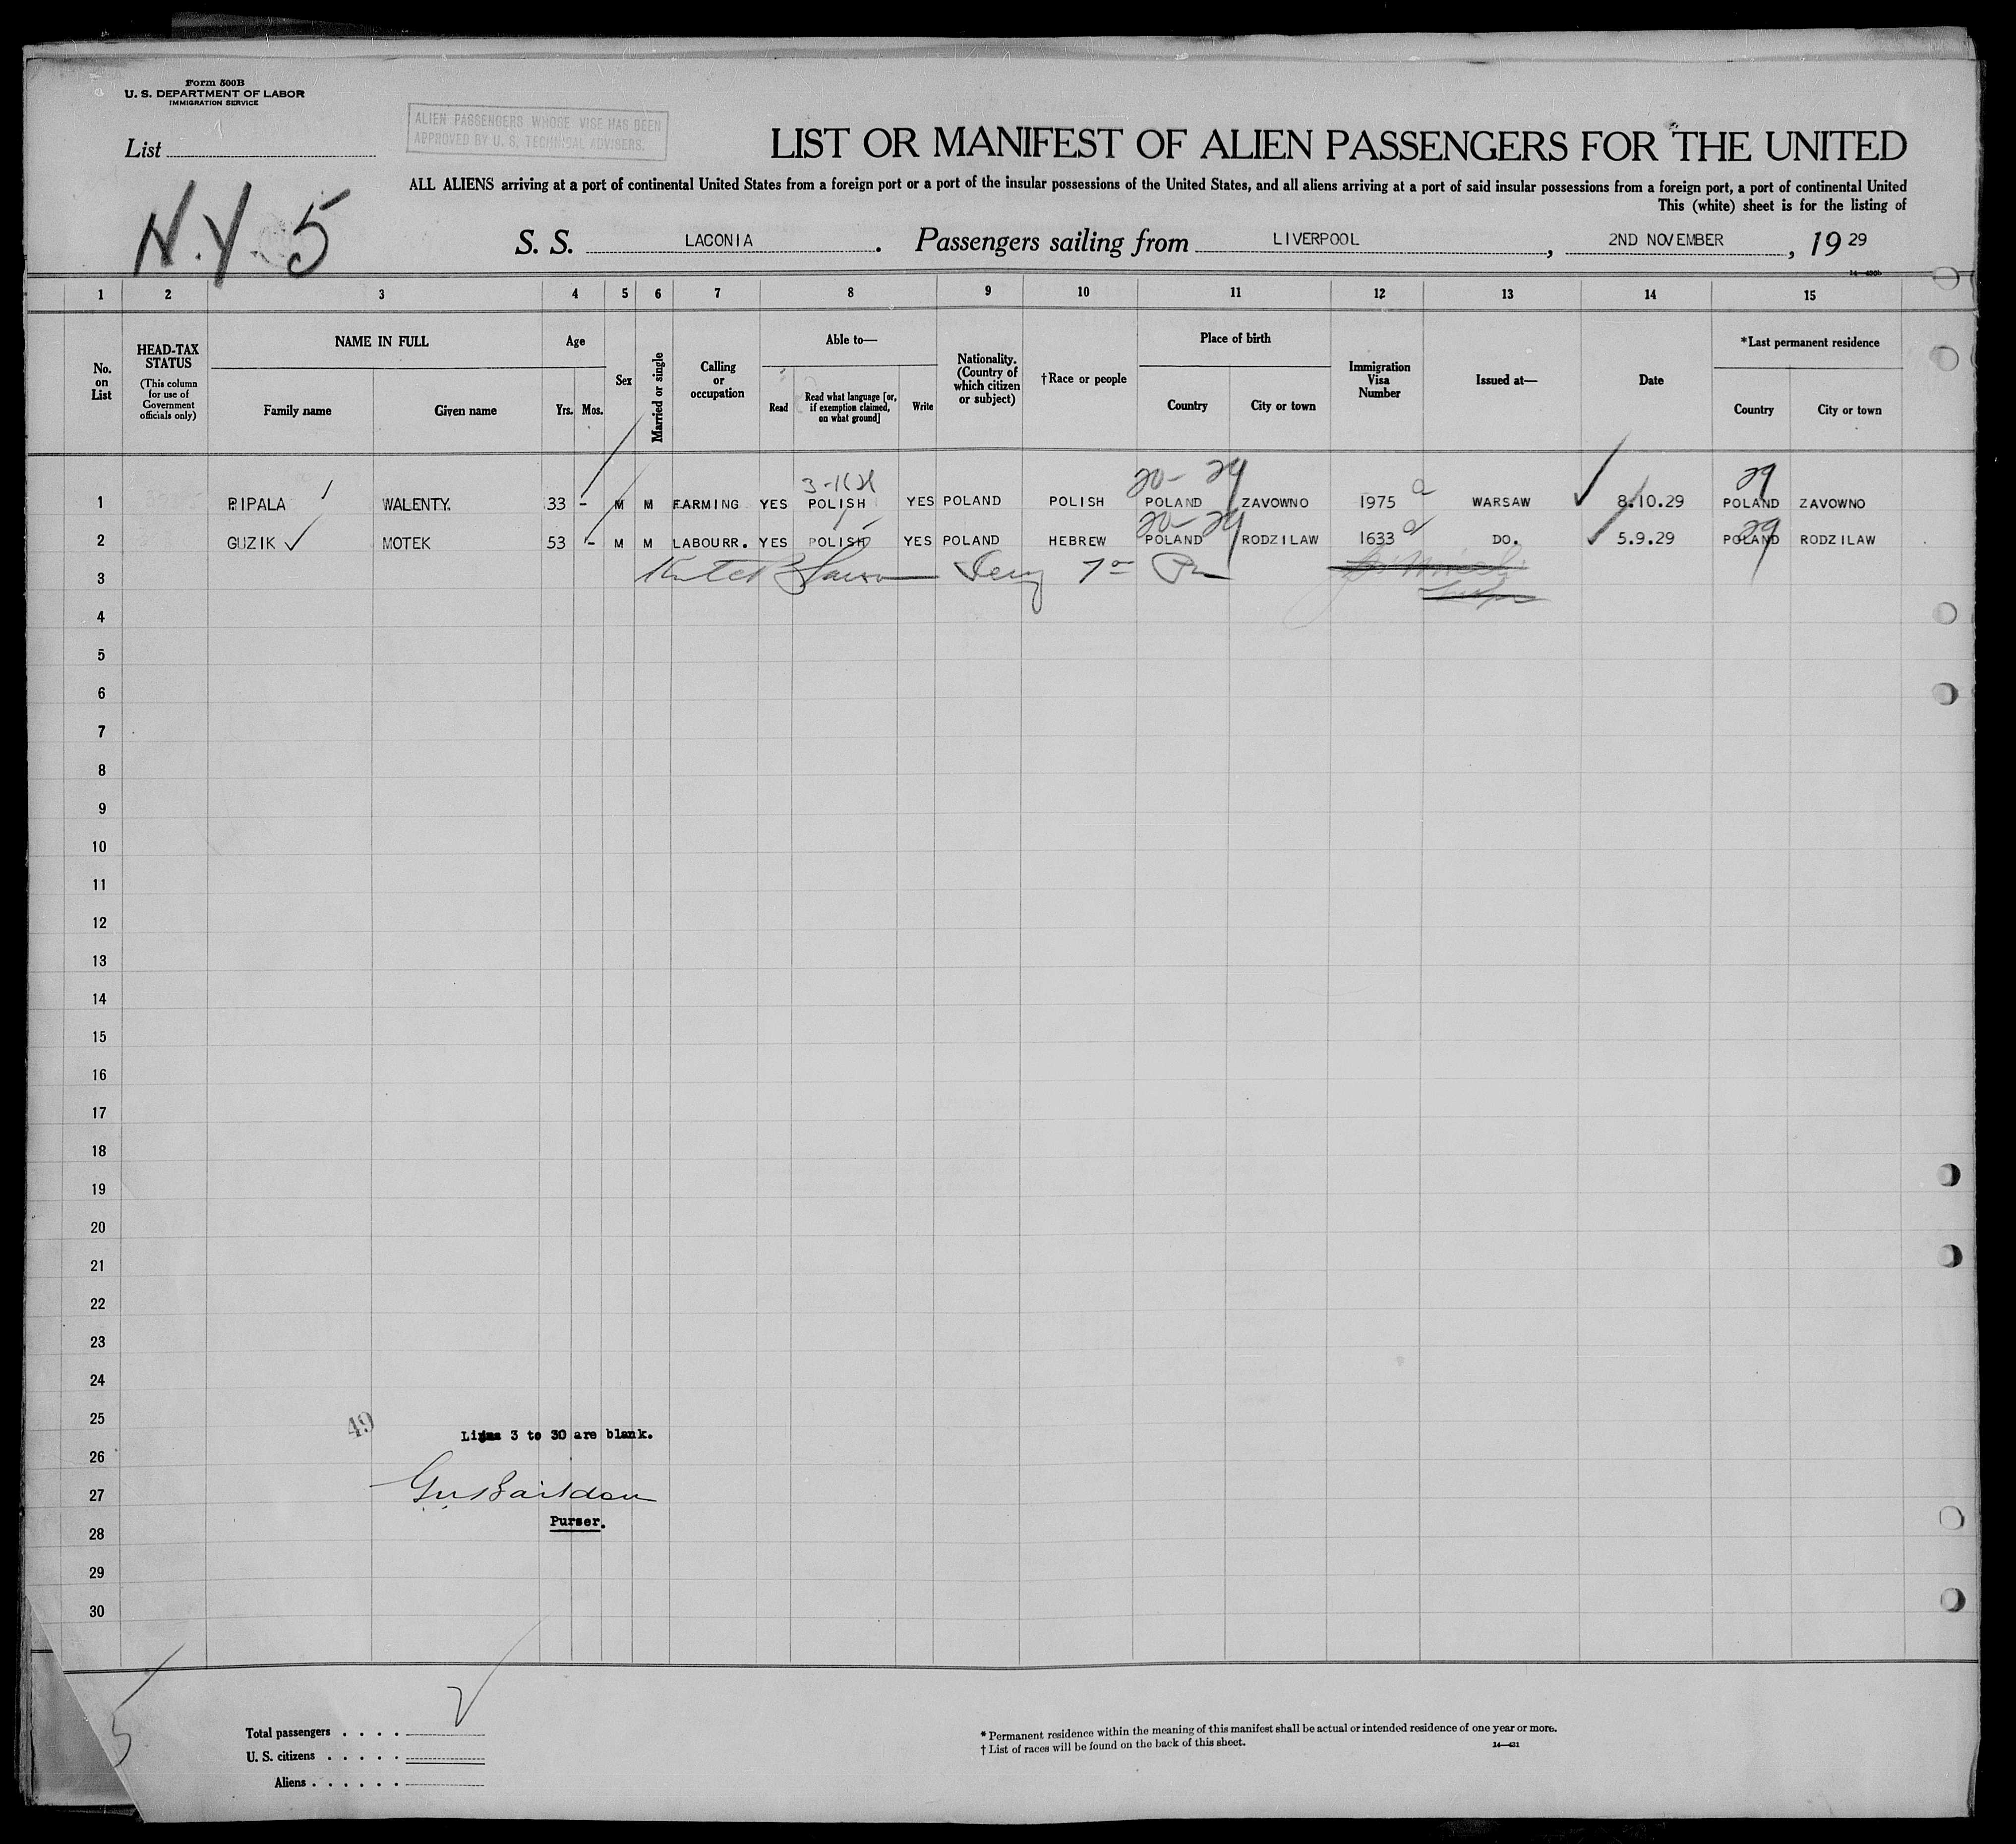 Form 500B
U. S. DEPARTMENT OF LABOR
IMMIGRATION SERVICE
ALIEN PASSENGERS WHOSE VISE HAS BEEN
APPROVED BY U. S. TECHNICAL ADVISERS.
List
LIST OR MANIFEST OF ALIEN PASSENGERS FOR THE UNITED
ALL ALIENS arriving at a port of continental United States from a foreign port or a port of the insular possessions of the United States, and all aliens arriving at a port of said insular possessions from a foreign port, a port of continental United
This (white) sheet is for the listing of
N.Y. 5
S. S. LACONIA. Passengers sailing from LIVERPOOL, 2ND NOVEMBER, 19 29
1 2 3 4 5 6 7 8 9 10 11 12 13 14 15
No. on List
HEAD-TAX STATUS
(This column for use of Government officials only)
NAME IN FULL
Family name Given name
Age
Yrs. Mos.
Sex
Married or single
Calling or occupation
Able to—
Read
Read what language [or, if exemption claimed, on what ground]
Write
Nationality. (Country of which citizen or subject)
†Race or people
Place of birth
Country City or town
Immigration Visa Number
Issued at—
Date
*Last permanent residence
Country City or town
20- 29 29
1 PIPALA WALENTY. 33 - M M FARMING YES POLISH YES POLAND POLISH POLAND ZAVOWNO 1975 a WARSAW 8.10.29 POLAND ZAVOWNO
20- 29 29
2 GUZIK MOTEK 53 - M M LABOURR. YES POLISH YES POLAND HEBREW POLAND RODZILAW 1633 a DO. 5.9.29 POLAND RODZILAW
3
4
5
6
7
8
9
10
11
12
13
14
15
16
17
18
19
20
21
22
23
24
25
49
Lines 3 to 30 are blank.
26
27
Purser.
28
29
30
5
Total passengers . . . .
U. S. citizens . . . . .
Aliens . . . . . .
* Permanent residence within the meaning of this manifest shall be actual or intended residence of one year or more.
† List of races will be found on the back of this sheet.
14—431